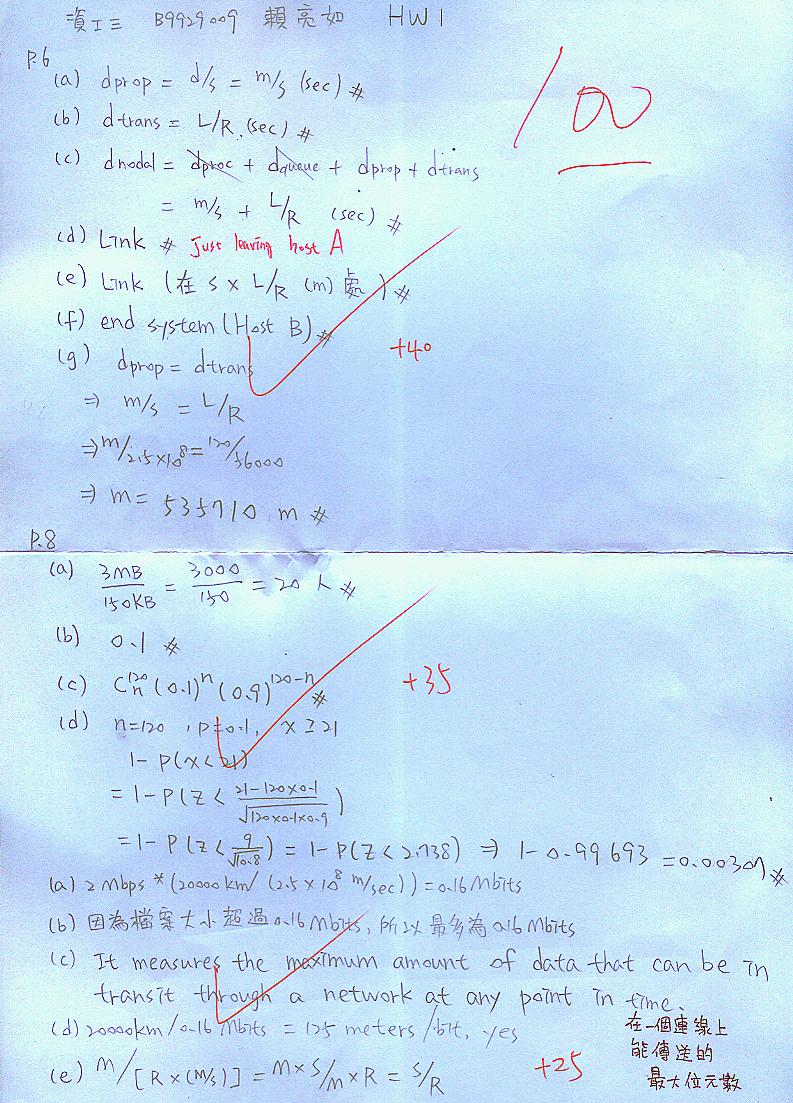 資工三 B9929009 賴亮如 HW1
100
P.6
(a) dprop = d/s = m/s (sec) #
(b) dtrans = L/R (sec) #
(c) dnodal = dproc + dqueue + dprop + dtrans
= m/s + L/R (sec) #
(d) Link # just leaving host A
(e) Link (在 S x L/R (m) 處) #
(f) end system (Host B) #
+40
(g) dprop = dtrans
⇒ m/s = L/R
⇒ m/2.5×10^8 = 120/56000
⇒ m = 535710 m #
P.8
(a) 3MB/150KB = 3000/150 = 20 人 #
(b) 0.1 #
(c) C^120_n (0.1)^n (0.9)^120-n #
+35
(d) n=120 , p=0.1, x ≥ 21
1 - P(x < 21)
= 1 - P(Z < 21-120×0.1/√120×0.1×0.9)
= 1 - P(Z < 9/√10.8) = 1 - P(Z < 2.738) ⇒ 1 - 0.99693 = 0.00307 #
(a) 2 Mbps * (20000 km/ (2.5 × 10^8 m/sec)) = 0.16 Mbits
(b) 因為檔案大小超過0.16 Mbits, 所以最多為0.16 Mbits
(c) It measures the maximum amount of data that can be in
transit through a network at any point in time.
在一個連線上
能傳送的
最大位元數
(d) 20000km/0.16 Mbits = 125 meters/bit, yes
(e) m/[R×(m/s)] = m×s/m×R = s/R
+25